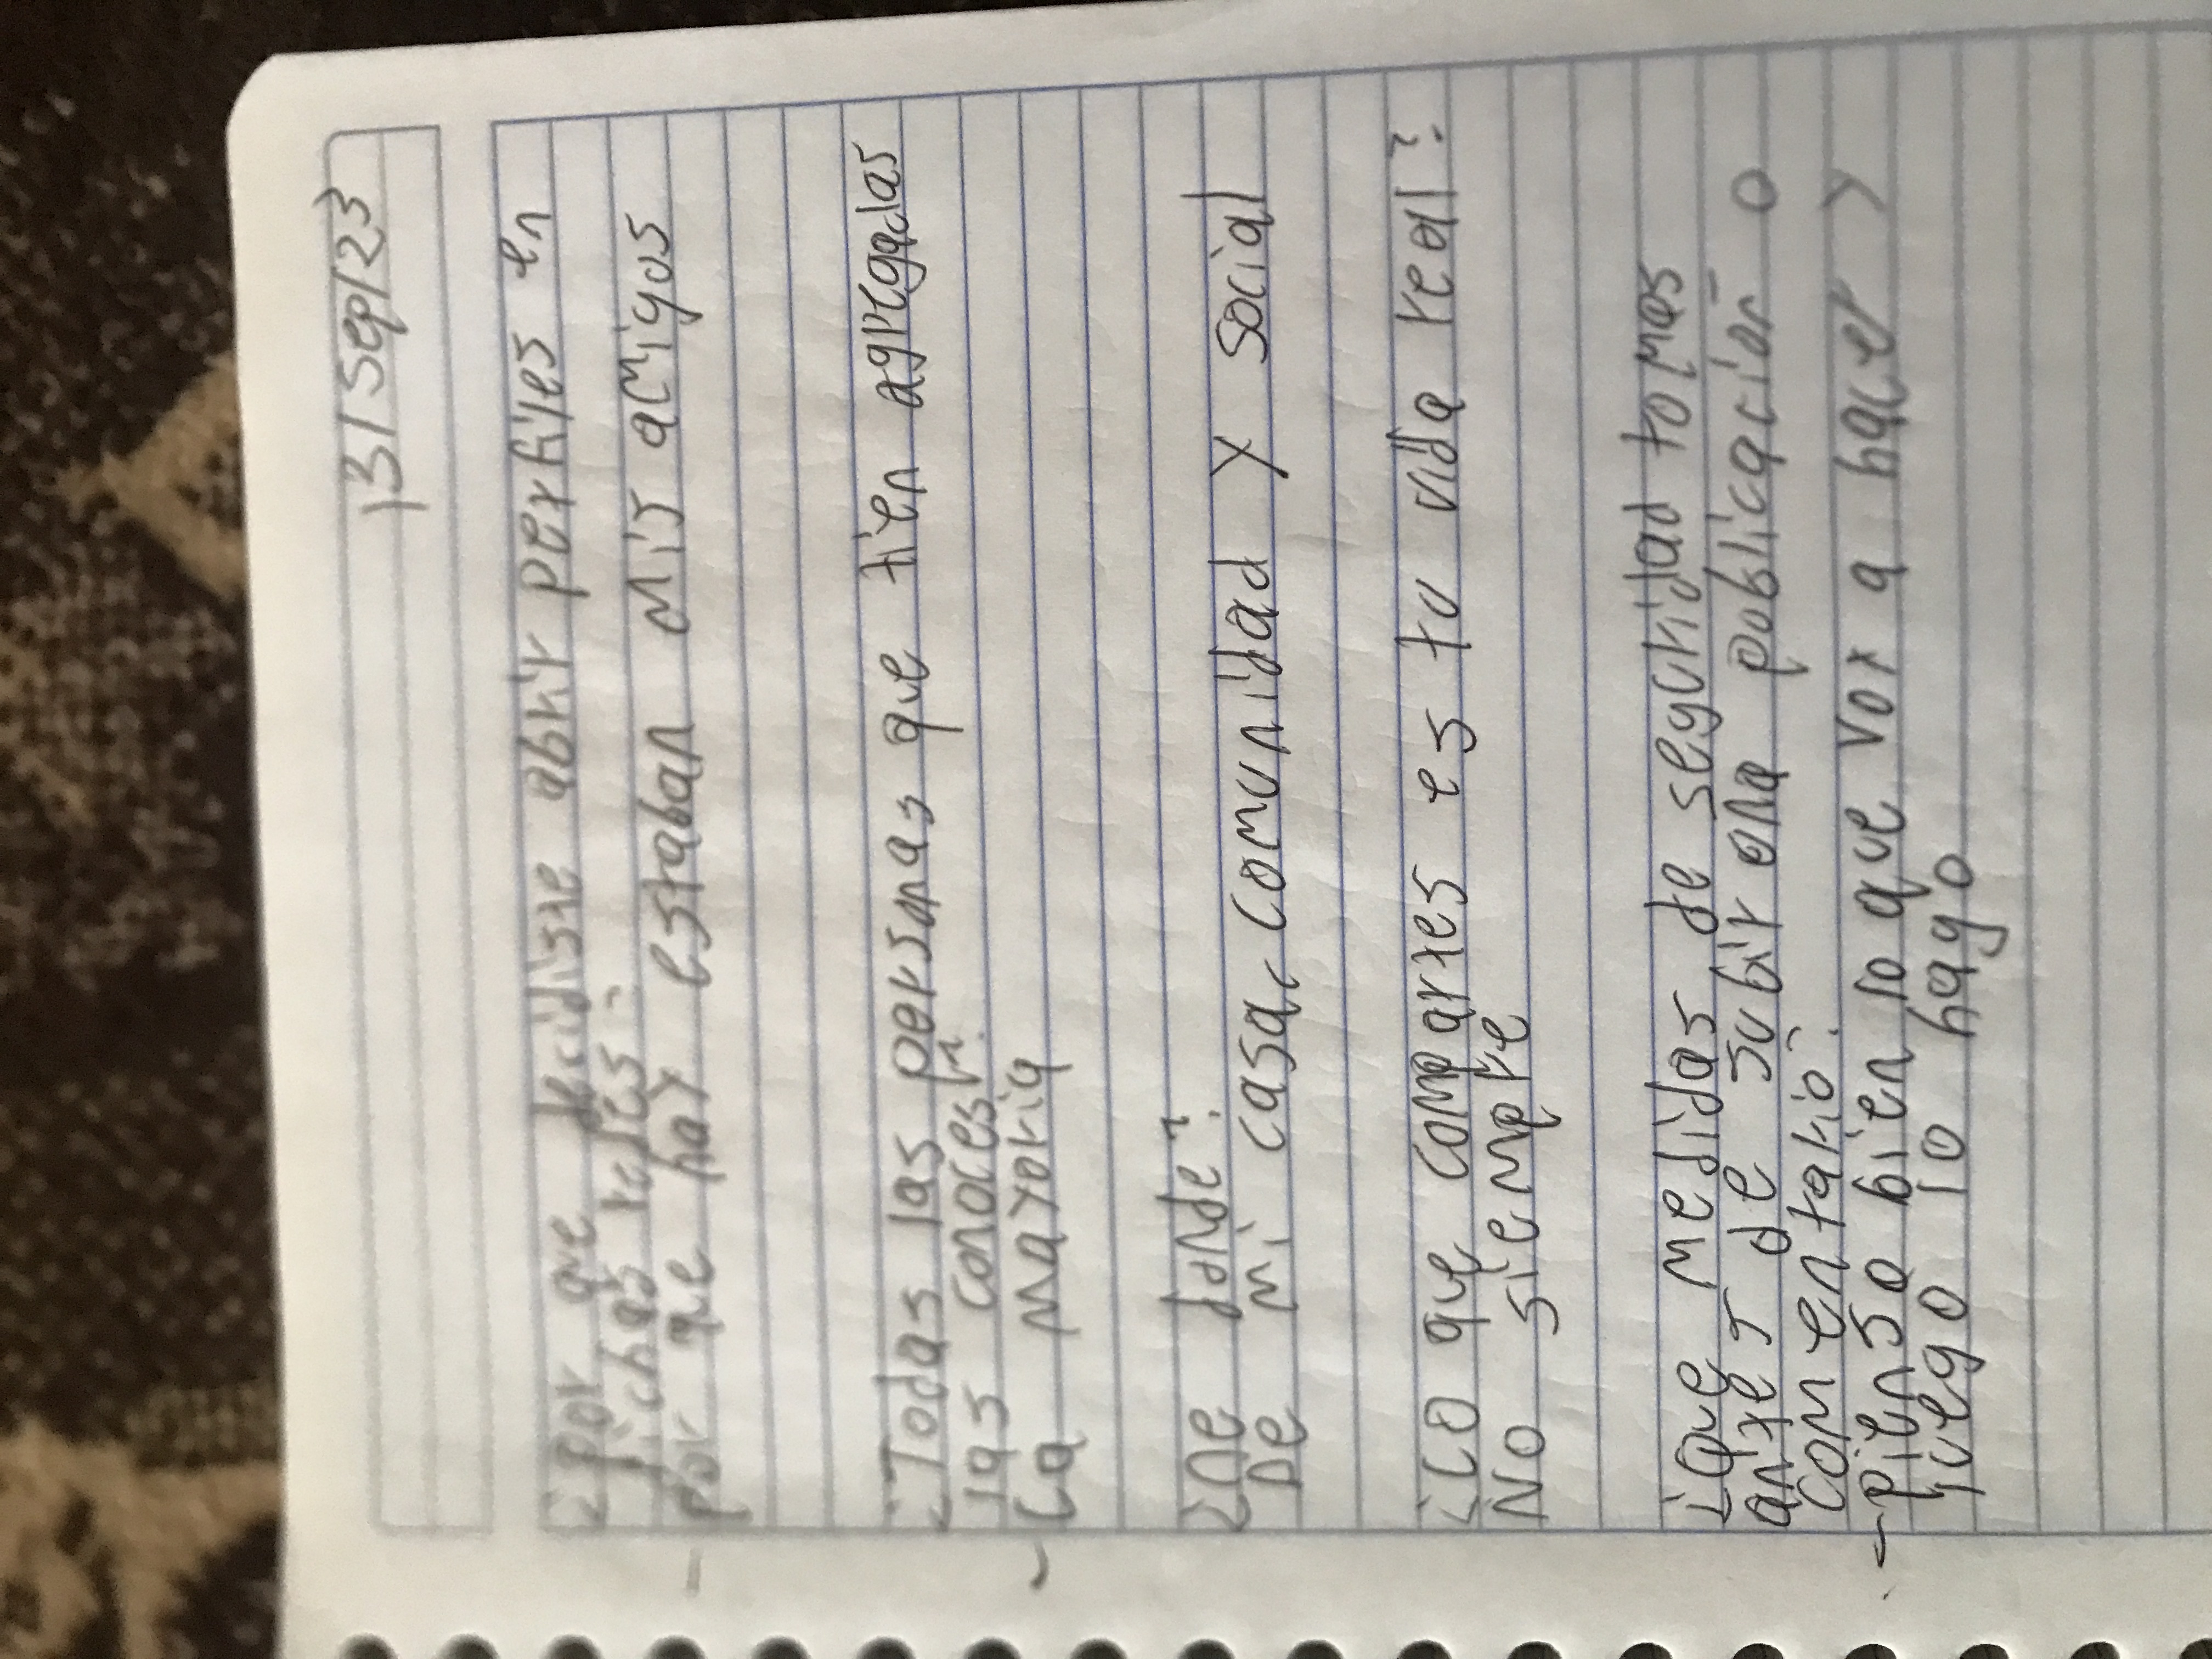 13/Sep/23
¿por que decidiste abrir perfiles en
dichas redes?
- por que hay estaban mis amigos
¿Todas las personas que tien agregadas
las conoces?
- La mayoria
¿De donde?
De mi casa, comunidad y social
¿Lo que compartes es tu vida real?
No siempre
¿Que medidas de seguridad tomas
antes de subir una publicación o
comentario?
- Pienso bien lo que voy a hacer y
luego lo hago